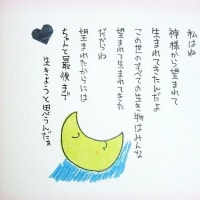 私はね
神様から望まれて
生まれてきたんだよ
この世のすべての生き物はみんな
望まれて生まれてきた
だからね
望まれたからには
ちゃんと最後まで
生きようと思うんだぁ